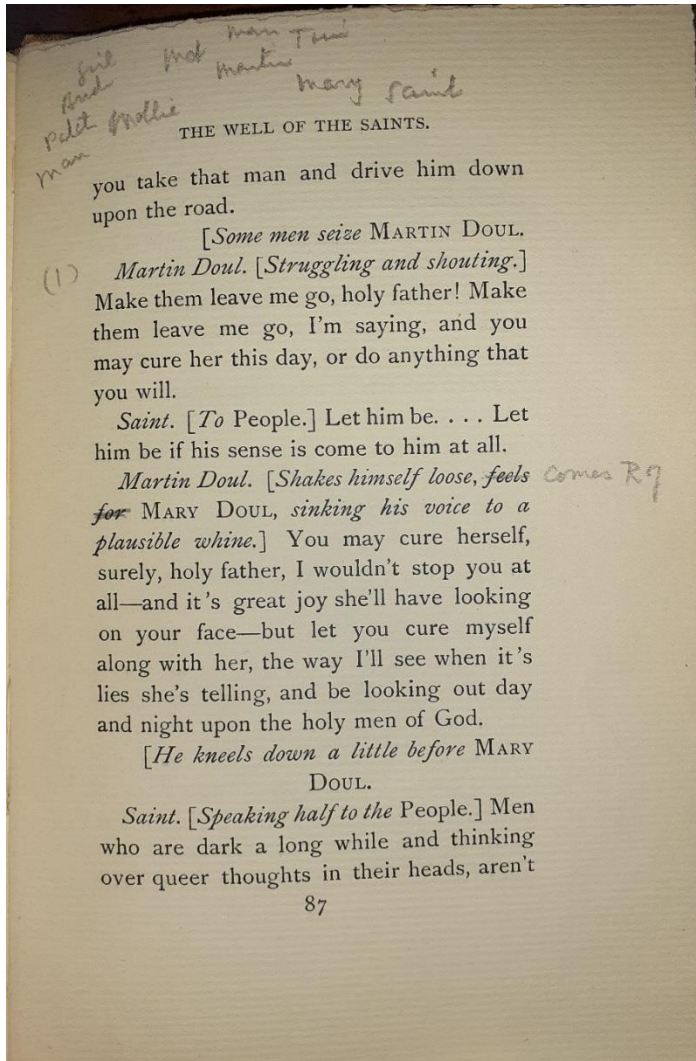 man Tim
girl mat martin
mary saint
Patch mollie
man
THE WELL OF THE SAINTS.
you take that man and drive him down
upon the road.
[Some men seize MARTIN DOUL.
(1)
Martin Doul. [Struggling and shouting.]
Make them leave me go, holy father! Make
them leave me go, I'm saying, and you
may cure her this day, or do anything that
you will.
Saint. [To People.] Let him be. . . . Let
him be if his sense is come to him at all.
Martin Doul. [Shakes himself loose, feels comes R of
for MARY DOUL, sinking his voice to a
plausible whine.] You may cure herself,
surely, holy father, I wouldn't stop you at
all—and it's great joy she'll have looking
on your face—but let you cure myself
along with her, the way I'll see when it's
lies she's telling, and be looking out day
and night upon the holy men of God.
[He kneels down a little before MARY
DOUL.
Saint. [Speaking half to the People.] Men
who are dark a long while and thinking
over queer thoughts in their heads, aren't
87